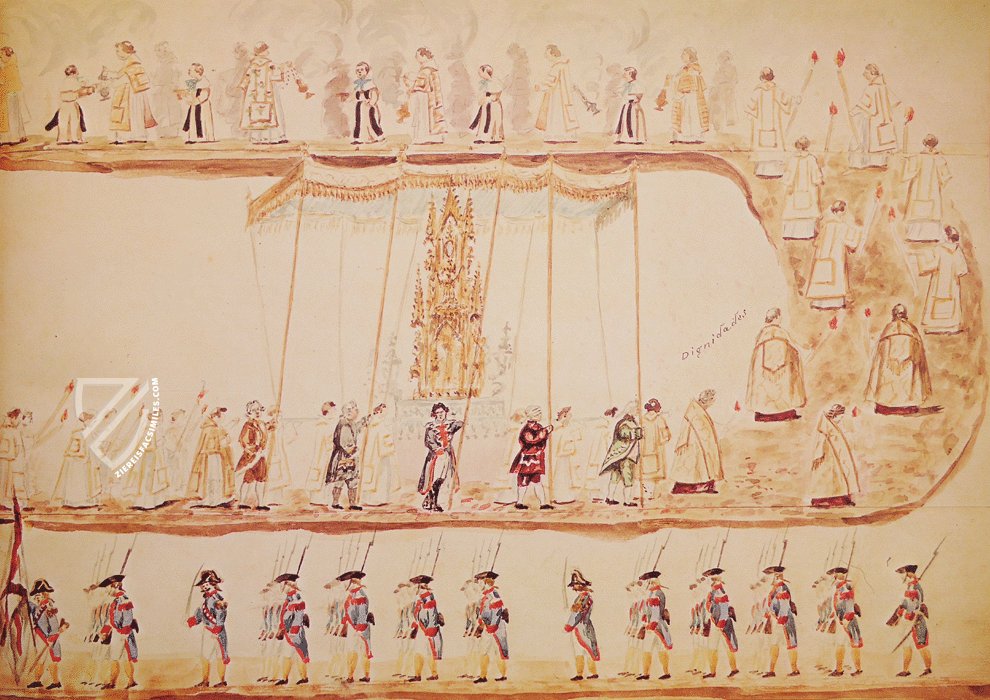 Dignidades
ZIEREISFACSIMILES.COM